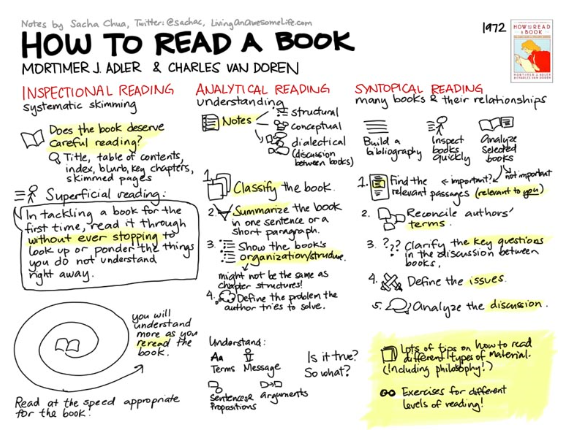 Notes by Sacha Chua, Twitter: @sachac, LivingAnAwesomeLife.com
HOW TO READ A BOOK
MORTIMER J. ADLER & CHARLES VAN DOREN
1972
HOW TO READ
A BOOK
INSPECTIONAL READING
systematic skimming
Does the book deserve
careful reading?
Title, table of contents,
index, blurb, key chapters,
skimmed pages
Superficial reading:
In tackling a book for the
first time, read it through
without ever stopping to
look up or ponder the things
you do not understand
right away.
you will
understand
more as you
reread the
book.
Read at the speed appropriate
for the book!
ANALYTICAL READING
understanding
Notes
structural
conceptual
dialectical
(discussion
between books)
1. Classify the book.
2. Summarize the book
in one sentence or a
short paragraph.
3. Show the book's
organization/structure.
might not be the same as
chapter structures!
4. Define the problem the
author tries to solve.
Understand:
Aa
Terms
Message
Sentences &
Propositions
arguments
Is it true?
So what?
SYNTOPICAL READING
many books & their relationships
Build a
bibliography
Inspect
books
quickly
Analyze
selected
books
1. Find the
relevant passages (relevant to you)
important?
not important
2. Reconcile authors'
terms.
3. ??? Clarify the key questions
in the discussion between
books.
4. Define the issues.
5. Analyze the discussion.
Lots of tips on how to read
different types of material.
(Including philosophy!)
Exercises for different
levels of reading!